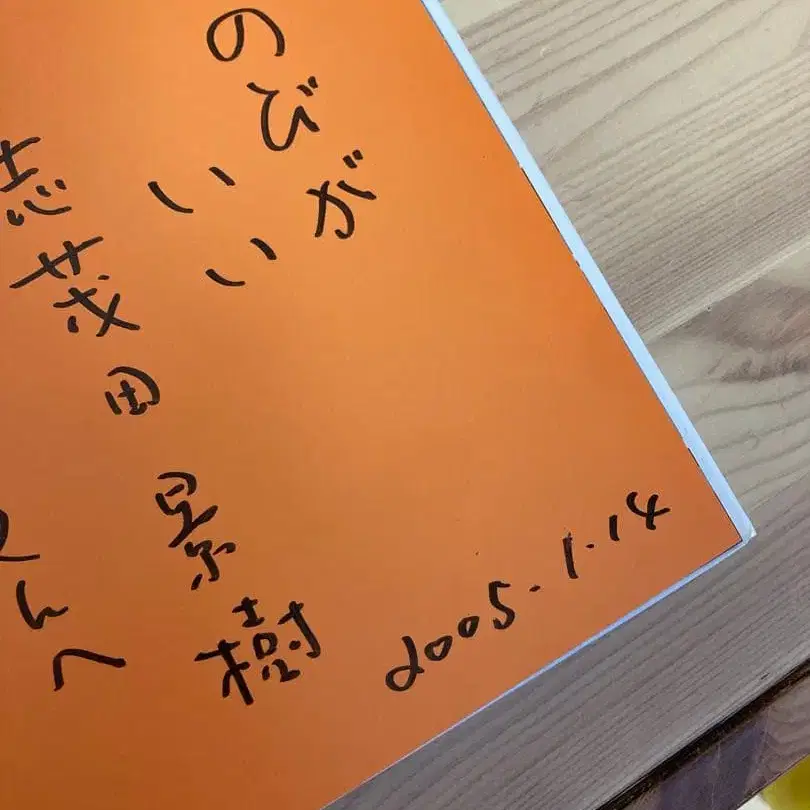 のびが
いい
志茂田景樹
んへ
2005.1.14